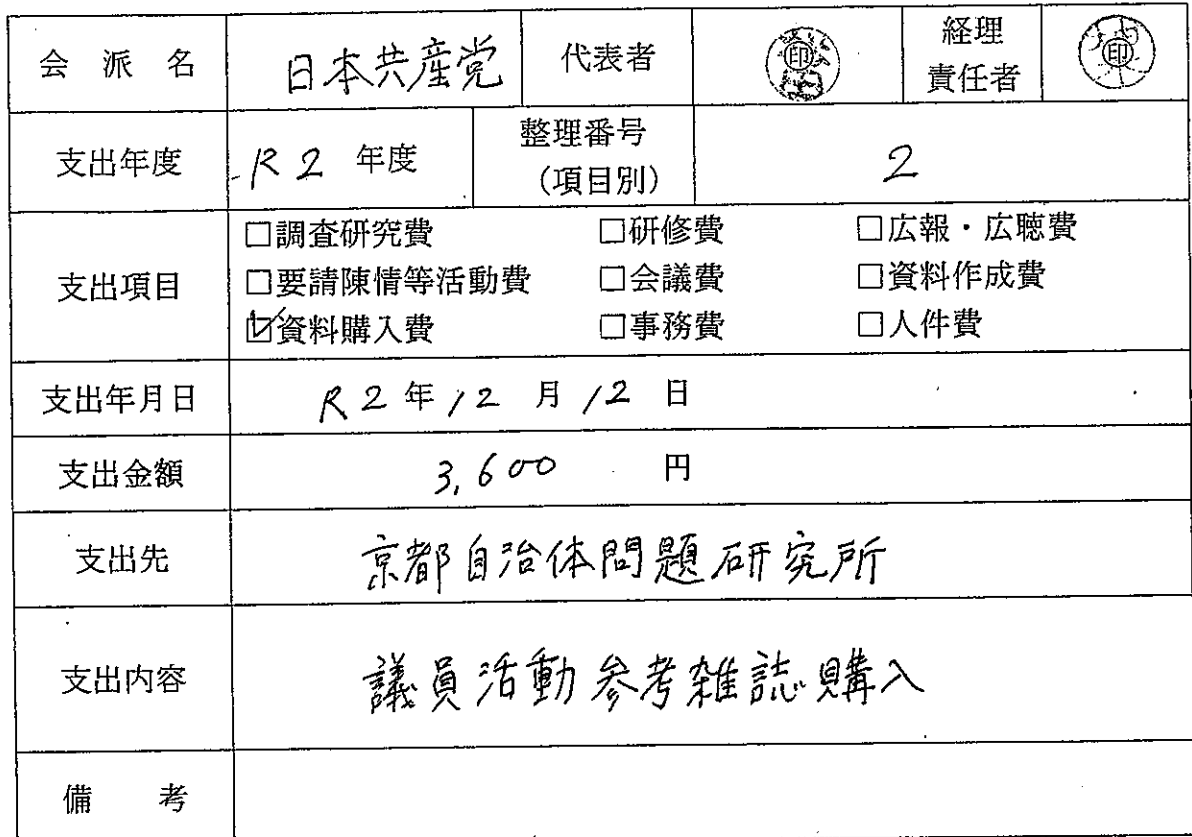 会派名 日本共産党 代表者 印 経理責任者 印
支出年度 R2年度 整理番号(項目別) 2
支出項目
□調査研究費 □研修費 □広報・広聴費
□要請陳情等活動費 □会議費 □資料作成費
☑資料購入費 □事務費 □人件費
支出年月日 R2年12月12日
支出金額 3,600 円
支出先 京都自治体問題研究所
支出内容 議員活動参考雑誌購入
備考